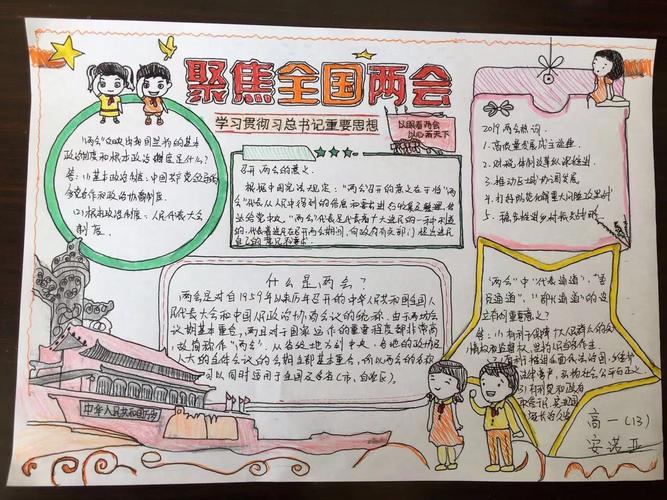 聚焦全国两会
学习贯彻习总书记重要思想
以眼看两会
以心看天下
"两会"反映出我国怎样的基本
政治制度和根本政治制度是什么?
答:(1)基本政治制度、中国共产党领导的
多党合作和政治协商制度.
(2)根本政治制度:人民代表大会
制度.
召开两会的意义.
根据中国宪法规定:"两会"召开的意义在于将"两
会"代表从人民中得到的信息和要求进行收集及整理,传
达给党中央。"两会"代表是代表着广大选民的一种利益
的,代表着选民在召开两会期间,向政府有关部门提出选民
自己的意见和要求.
什么是两会?
两会是对自1959年以来历年召开的中华人民共和国全国人
民代表大会和中国人民政治协商会议的统称.由于两场会
议期基本重合,而且对于国家运作的重要程度都非常高
故简称作"两会".从省级地方到中央,各地的政协及
人大的全体会议的会期全部基本重合,所以两会的名称
可以同时适用于全国及各省(市、自治区).
2019两会热词
1.高质量发展制造业.
2.财税体制改革纵深推进.
3.推动区域协调发展.
4.打好防范化解重大风险攻坚战
5.稳步推进乡村振兴战略
"两会"中"代表通道"、"委
员通道"、"部长通道"的设
立有何重要意义?
中华人民共和国万岁
高一(13)
安诺亚